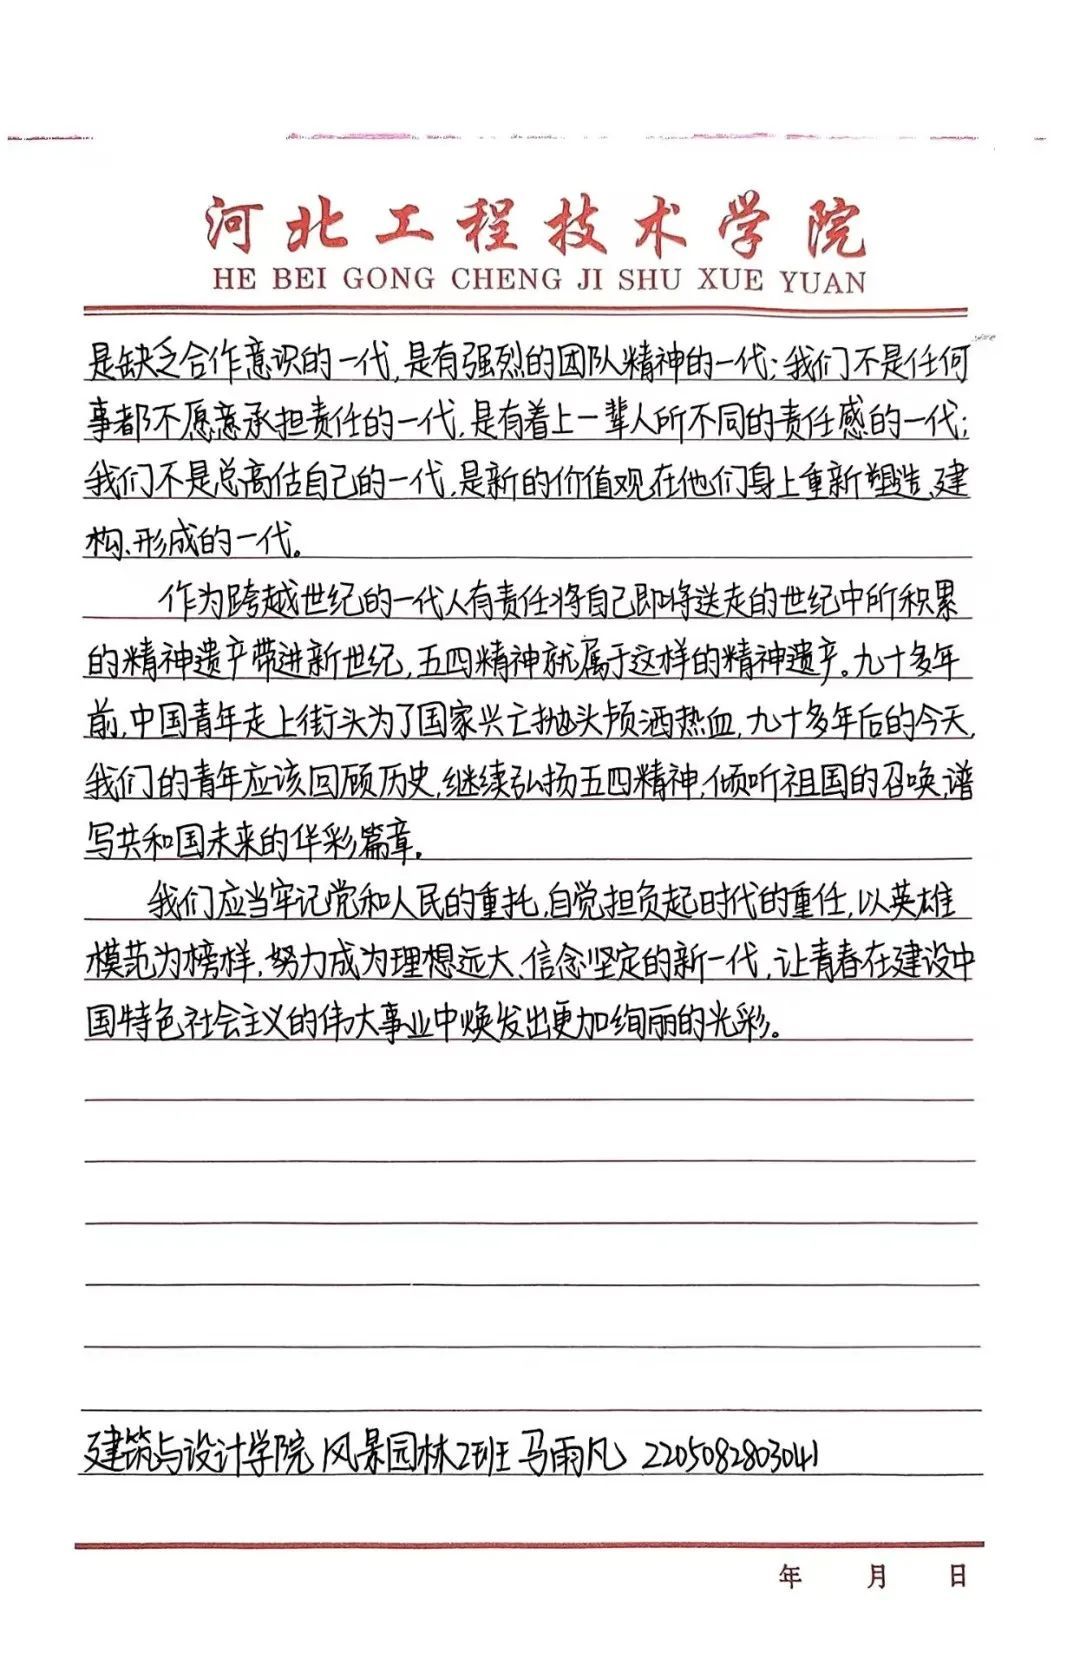 河北工程技术学院
HE BEI GONG CHENG JI SHU XUE YUAN
是缺乏合作意识的一代,是有强烈的团队精神的一代;我们不是任何
事都不愿意承担责任的一代,是有着上一辈人所不同的责任感的一代;
我们不是总高估自己的一代,是新的价值观在他们身上重新塑造、建
构、形成的一代。
作为跨越世纪的一代人有责任将自己即将送走的世纪中所积累
的精神遗产带进新世纪,五四精神就属于这样的精神遗产。九十多年
前,中国青年走上街头为了国家兴亡抛头颅洒热血,九十多年后的今天,
我们的青年应该回顾历史,继续弘扬五四精神,倾听祖国的召唤,谱
写共和国未来的华彩篇章。
我们应当牢记党和人民的重托,自觉担负起时代的重任,以英雄
模范为榜样,努力成为理想远大、信念坚定的新一代,让青春在建设中
国特色社会主义的伟大事业中焕发出更加绚丽的光彩。
建筑与设计学院 风景园林2班 马雨凡 2205082803041
年 月 日